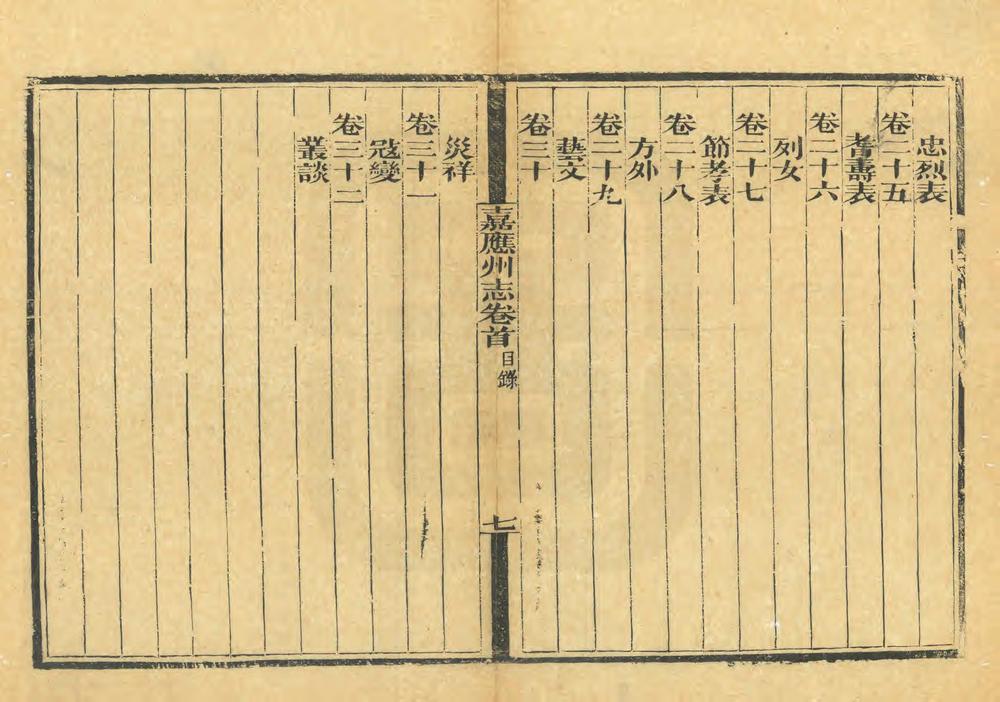 忠烈表
卷二十五
耆壽表
卷二十六
列女
卷二十七
節孝表
卷二十八
方外
卷二十九
藝文
卷三十
嘉應州志卷首
目錄
七
災祥
卷三十一
寇變
卷三十二
叢談